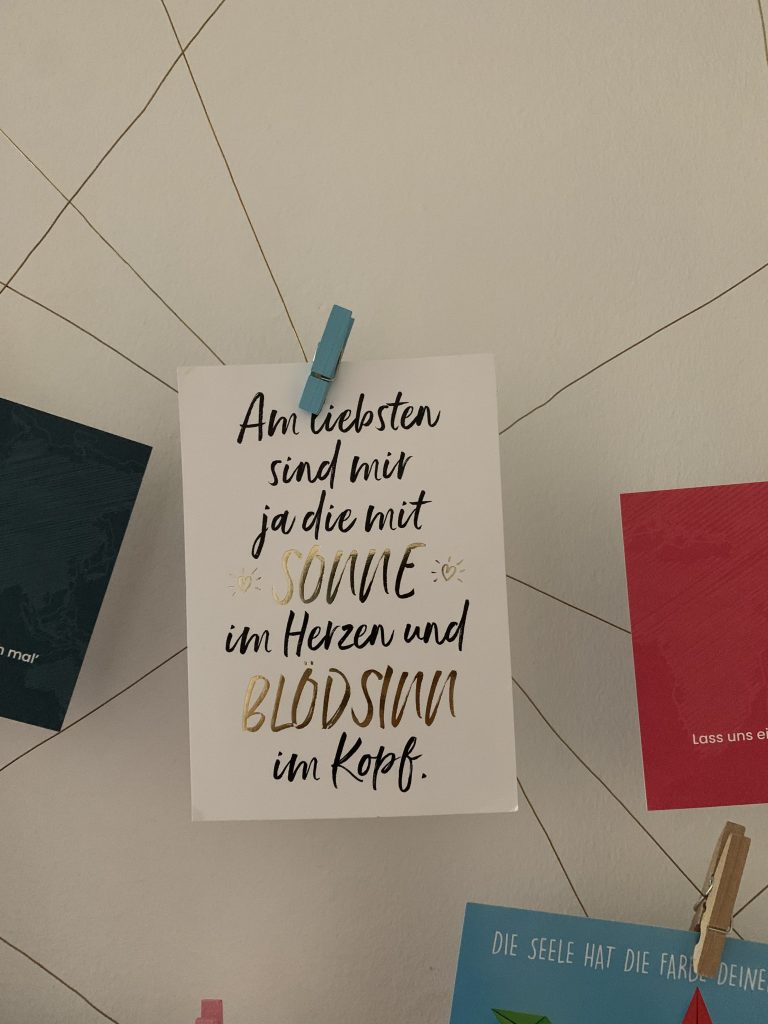 Am liebsten
sind mir
ja die mit
SONNE
im Herzen und
BLÖDSINN
im Kopf.
mal'
Lass uns
DIE SEELE HAT DIE FARBE DEINER